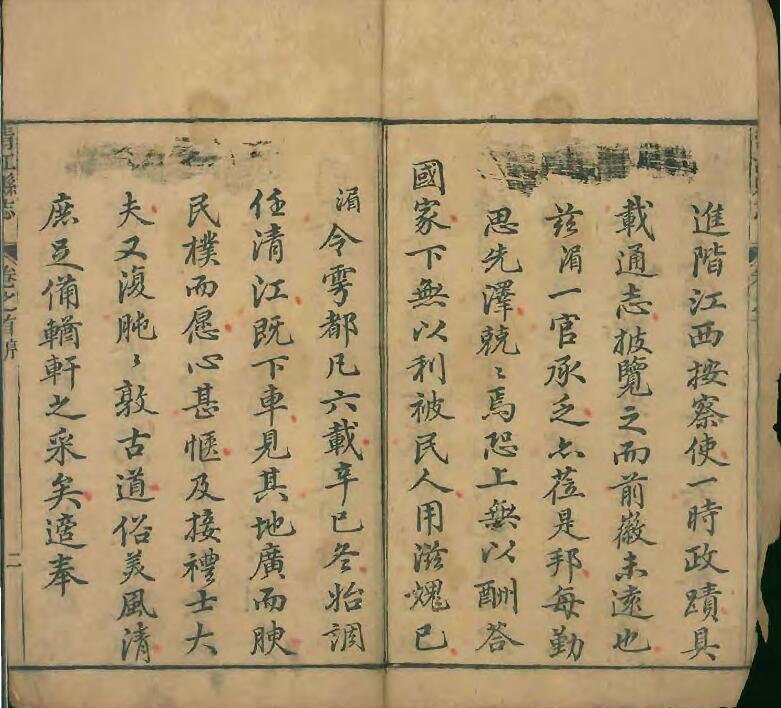 進階江西按察使一時政蹟具
載通志披覽之而前徽未遠也
茲湄一官承乏亦莅是邦每勤
思先澤兢〻焉恐上無以酬答
國家下無以利被民人用滋愧已
湄令雩都凡六載辛巳冬始調
任清江既下車見其地廣而腴
民樸而愿心甚愜及接禮士大
夫又復肫〻敦古道俗美風清
庶足備輶軒之采矣適奉
清江縣志
卷之首
二